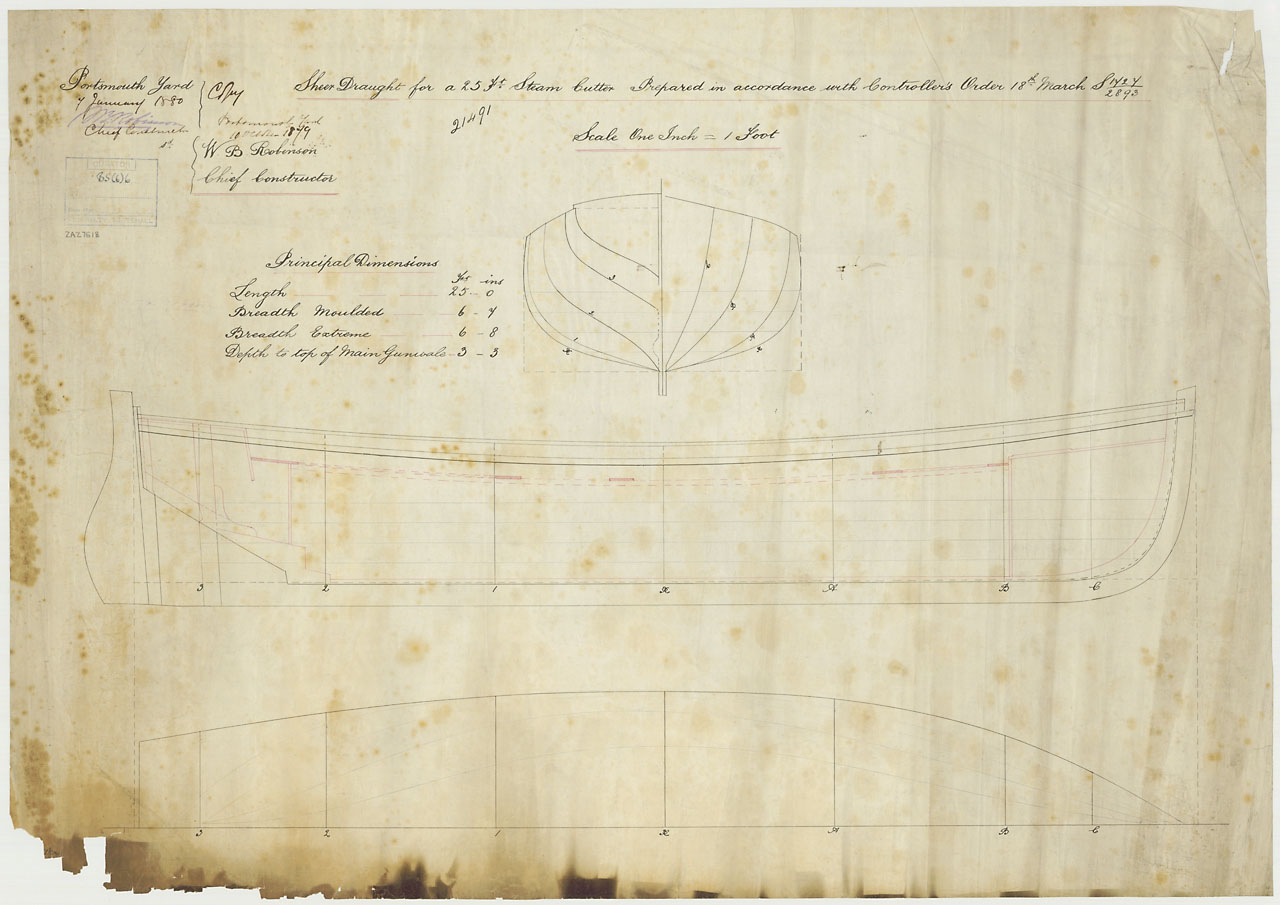 Portsmouth Yard
7 January 1880
Chief Constructor
Copy
Portsmouth Yard
1879
W B Robinson
Chief Constructor
Sheer Draught for a 25 Ft Steam Cutter Prepared in accordance with Controller's Order 18th March S 2893
21491
Scale One Inch = 1 Foot
ZAZ7618
Principal Dimensions
Fts ins
Length 25 - 0
Breadth Moulded 6 - 7
Breadth Extreme 6 - 8
Depth to top of Main Gunwale 3 - 3
3 2 1 A B C
3 2 1 A B C